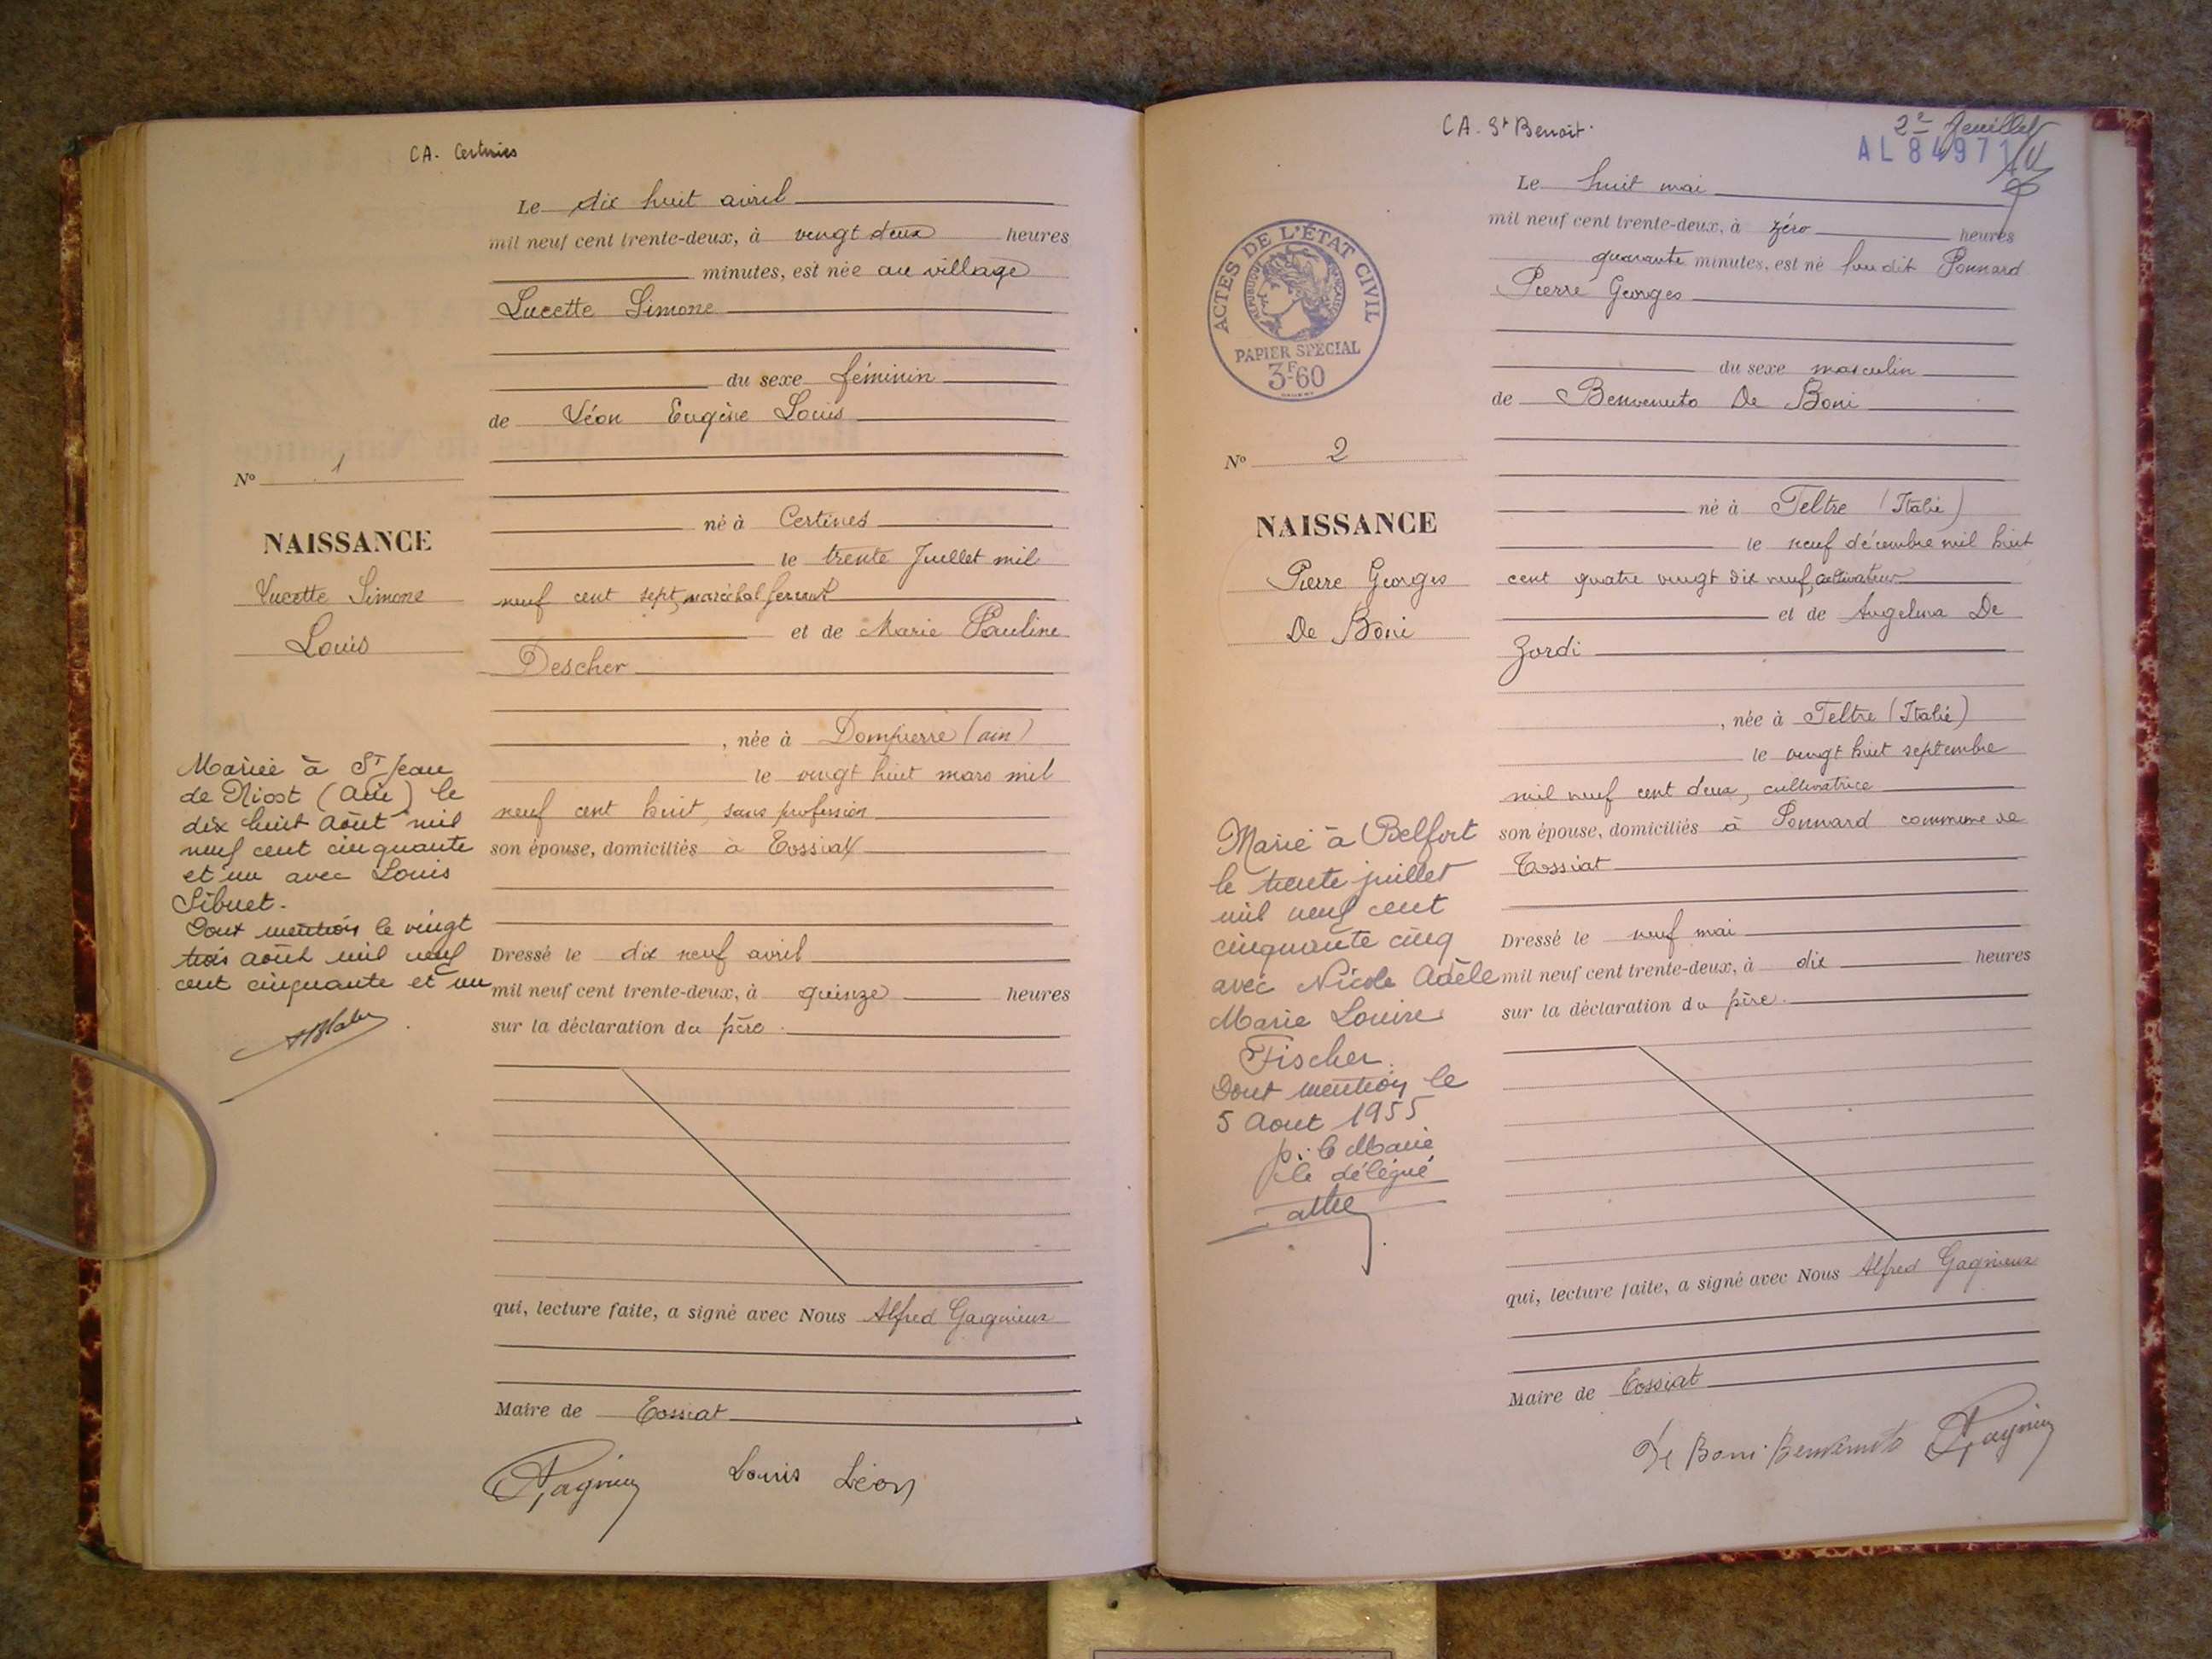 CA. Certines
Le dix huit avril
mil neuf cent trente-deux, à vingt deux heures
minutes, est née au village
Lucette Simone
du sexe féminin
de Léon Eugène Louis
né à Certines
le trente Juillet mil
neuf cent sept, maréchal ferrant
et de Marie Pauline
Descher
, née à Dompierre (ain)
le vingt huit mars mil
neuf cent huit, sans profession
son épouse, domiciliés à Tossiat
Dressé le dix neuf avril
mil neuf cent trente-deux, à quinze heures
sur la déclaration du père
qui, lecture faite, a signé avec Nous Alfred Gagnieux
Maire de Tossiat
Gagnieux Louis Léon
No 1
NAISSANCE
Lucette Simone
Louis
Mariée à St Jean
de Niost (Ain) le
dix huit Août mil
neuf cent cinquante
et un avec Louis
Sibuet.
Dont mention le vingt
trois août mil neuf
cent cinquante et un
CA. St Benoit.
2e feuillet
AL 84971
Le huit mai
mil neuf cent trente-deux, à zéro heures
quarante minutes, est né lieu dit Ponnard
Pierre Georges
du sexe masculin
de Benvenuto De Boni
né à Feltre (Italie)
le neuf décembre mil huit
cent quatre vingt dix neuf, cultivateur
et de Angelina De
Zordi
, née à Feltre (Italie)
le vingt huit septembre
mil neuf cent deux, cultivatrice
son épouse, domiciliés à Ponnard commune de
Tossiat
Dressé le neuf mai
mil neuf cent trente-deux, à dix heures
sur la déclaration du père.
qui, lecture faite, a signé avec Nous Alfred Gagnieux
Maire de Tossiat
De Boni Benvenuto Gagnieux
ACTES DE L'ÉTAT CIVIL
RÉPUBLIQUE FRANÇAISE
PAPIER SPÉCIAL
3F.60
No 2
NAISSANCE
Pierre Georges
De Boni
Marié à Belfort
le trente juillet
mil neuf cent
cinquante cinq
avec Nicole Adèle
Marie Louise
Fischer.
Dont mention le
5 Aout 1955
p. le Maire
le délégué